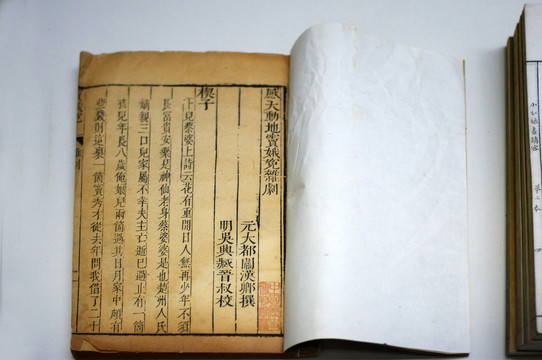 感天動地竇娥冤雜劇
元大都關漢卿撰
明吳興臧晉叔校
楔子
卜兒蔡婆上詩云花有重開日人無再少年不須
長富貴安樂是神仙老身蔡婆婆是也楚州人氏
嫡親三口兒家屬不幸夫主亡逝已過止有一箇
孩兒年長八歲俺娘兒兩箇過其日月家中頗有
些錢財這裏一箇竇秀才從去年問我借了二十
第二本
四